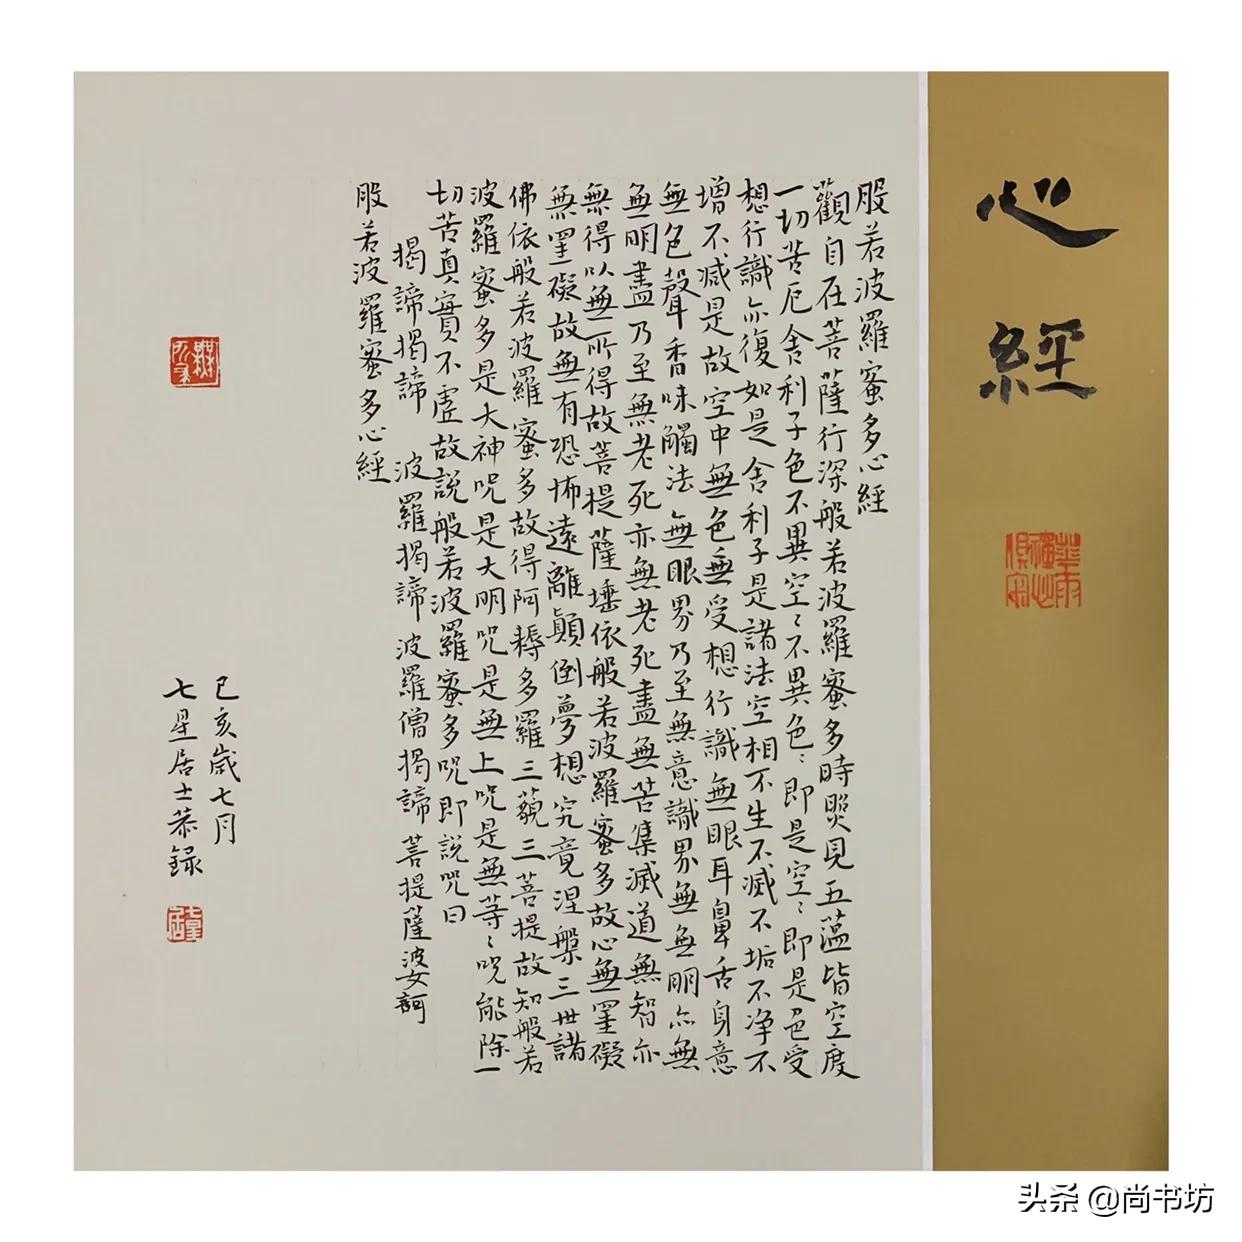 心經
般若波羅蜜多心經
觀自在菩薩行深般若波羅蜜多時照見五蘊皆空度
一切苦厄舍利子色不異空〻不異色〻即是空〻即是色受
想行識亦復如是舍利子是諸法空相不生不滅不垢不净不
增不减是故空中無色無受想行識無眼耳鼻舌身意
無色聲香味觸法無眼界乃至無意識界無無明亦無
無明盡乃至無老死亦無老死盡無苦集滅道無智亦
無得以無所得故菩提薩埵依般若波羅蜜多故心無罣礙
無罣礙故無有恐怖遠離顛倒夢想究竟涅槃三世諸
佛依般若波羅蜜多故得阿耨多羅三藐三菩提故知般若
波羅蜜多是大神咒是大明咒是無上咒是無等〻咒能除一
切苦真實不虛故說般若波羅蜜多咒即說咒曰
揭諦揭諦 波羅揭諦 波羅僧揭諦 菩提薩婆訶
般若波羅蜜多心經
己亥歲七月
七星居士恭錄
头条 @尚书坊